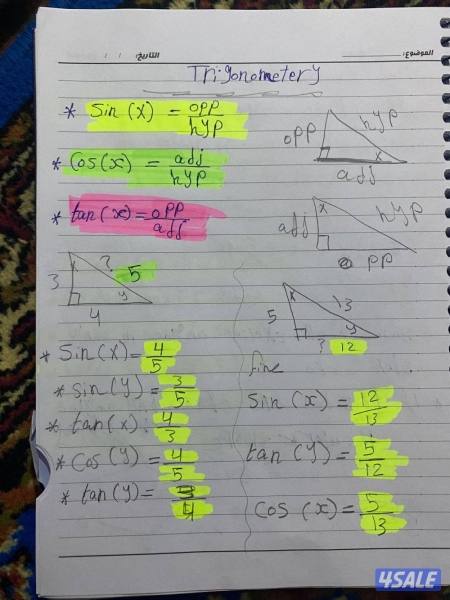 الموضوع: التاريخ: / /
Trigonometery
* Sin (x) = opp/hyp
opp hyp x adj
* Cos(x) = adj/hyp
* tan (x) = opp/adj
x adj hyp opp
x 3 ? 5 y 4
x 5 13 y ? 12
* Sin(x) = 4/5
* Sin(y) = 3/5
* tan(x) : 4/3
* Cos(y) = 4/5
* tan(y) = 3/4
fine
Sin (x) = 12/13
tan (y) = 5/12
Cos (x) = 5/13
4SALE